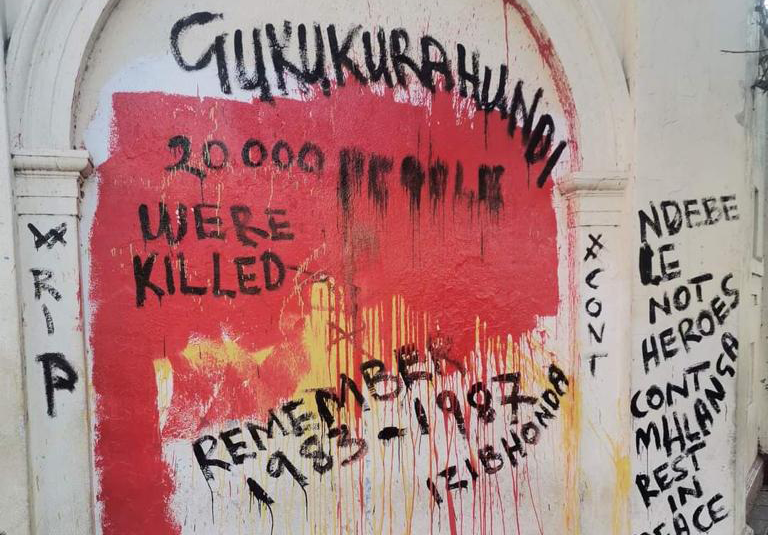 GUKUKURAHUNDI
20 000 PEOPLE
WERE
KILLED
REMEMBER
1983-1987
IZIBHONDA
RIP
CONT
NDEBE
LE
NOT
HEROES
CONT
MHLANGA
REST
IN
PEACE